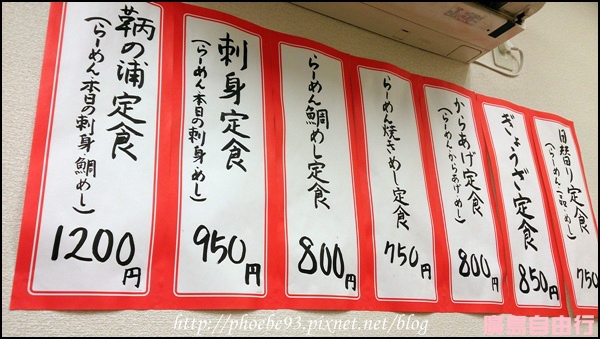 鞆の浦定食
(らーめん本日の刺身鯛めし)
1200円
刺身定食
(らーめん本日の刺身・めし)
950円
らーめん鯛めし定食
800円
らーめん焼きめし定食
750円
からあげ定食
(らーめんからあげめし)
800円
ぎょうざ定食
850円
日替り定食
(らーめん一品・めし)
750
http://phoebe93.pixnet.net/blog
廣島自由行